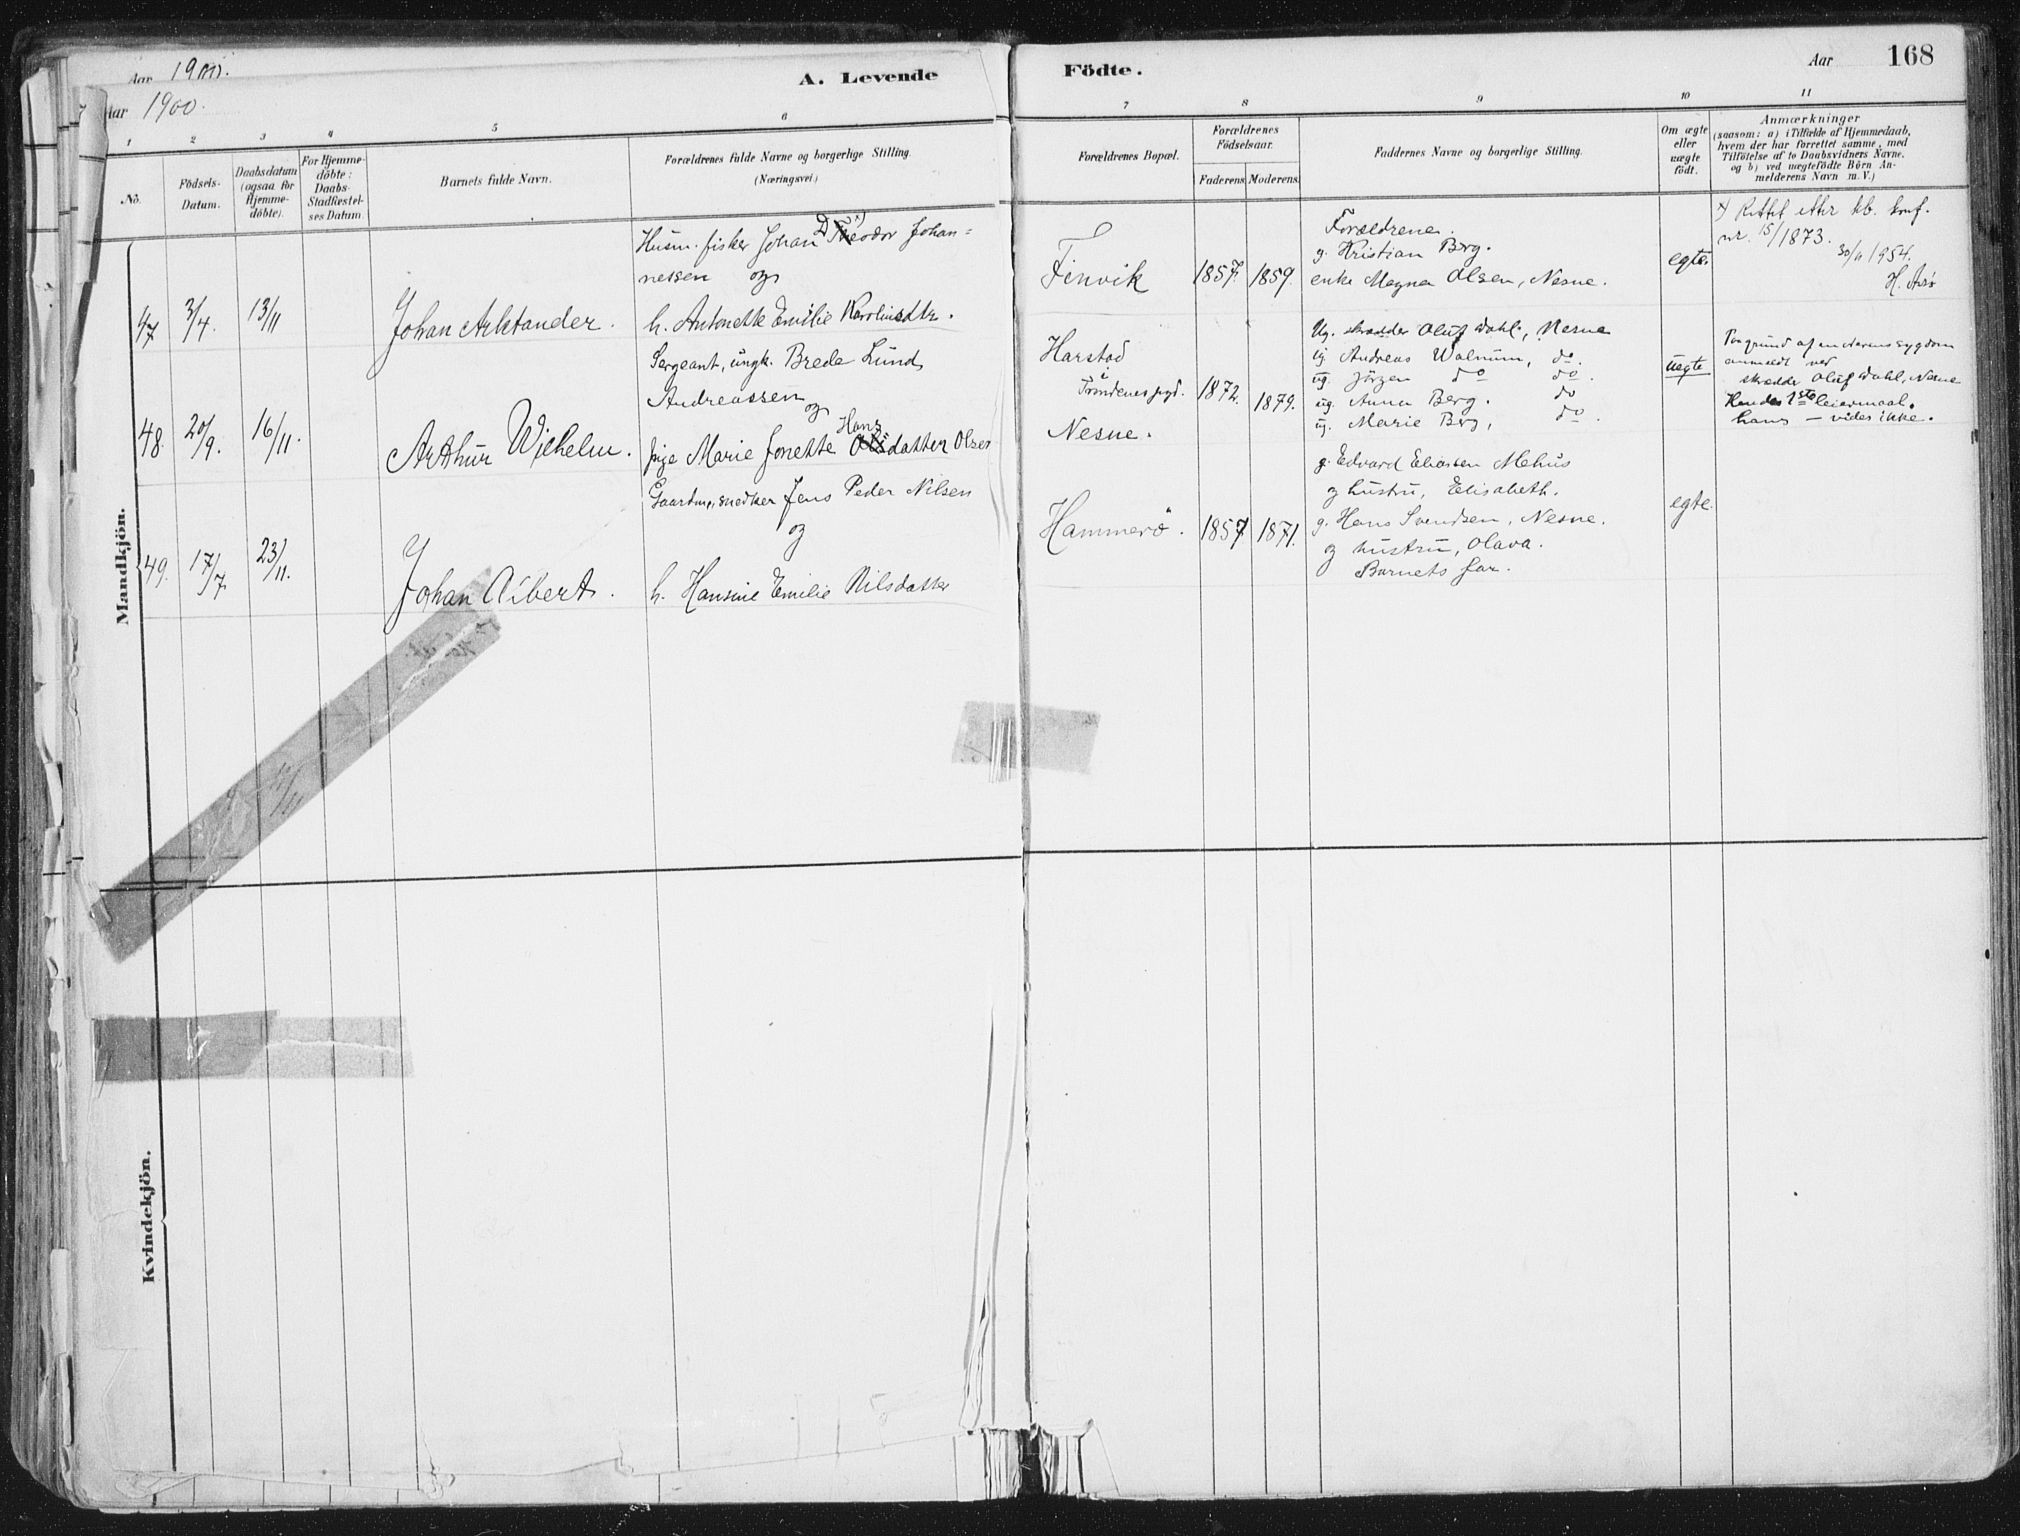 Aar 1900.
A. Levende
Födte.
Aar
168
Aar 1900.
1
2
3
4
5
6
7
8
9
10
11
No.
Födsels-
Datum.
Daabsdatum
(ogsaa for
Hjemme-
döbte).
For Hjemme-
döbte:
Daabs-
Stadfæstel-
ses Datum.
Barnets fulde Navn.
Forældrenes fulde Navne og borgerlige Stilling.
(Næringsvei.)
Forældrenes Bopæl.
Forældrenes
Födselsaar.
Faderens
Moderens.
Faddernes Navne og borgerlige Stilling.
Om ægte
eller
uægte
födt.
Anmærkninger
(saasom: a) i Tilfælde af Hjemmedaab,
hvem der har forrettet samme, med
Tilföielse af to Daabsvidners Navne.
og b) ved uægtefödte Börn An-
melderens Navn m. V.)
Mandkjön.
47
3/4.
13/11
Johan Arktander.
Husm. fisker Johan Theodor Johan=
nessen og
h. Antonette Emilie Karolinedtr.
Finvik
1857.
1859.
Forældrene.
g. Kristian Berg.
enke Magna Olsen, Nesne.
egte.
x) Rettet etter kb. konf.
nr. 15/1873.
30/11 1954.
48.
20/9.
16/11.
Arthur Wilhelm.
Sergeant, ungk. Brede Lund
Andreassen
og
Hans
pige Marie Jonette Olsdatter Olsen
Harstad
i
Trondenes pgd.
Nesne.
1872.
1879.
Ug. skrædder Oluf Dahl, Nesne
ug. Andreas Walnum, do.
ug. Jörgen do do.
ug. Anna Berg. do
ug. Marie Berg, do.
uegte
Paagrund af en Nervesygdom
anmeldt ved
skrædder Oluf Dahl, Nesne
Hendes 1ste leiermaal.
hans — vides ikke.
49.
17/7
23/11.
Johan Albert.
Gaardm., snedker Jens Peder Nilsen
og
h. Hansine Emilie Nilsdatter
Hammerö.
1857
1871.
g. Edvard Eliassen Mehus
og hustru, Elisabeth.
g. Hans Svendsen, Nesne.
og hustru, Olava.
Barnets far.
egte.
Kvindekjön.